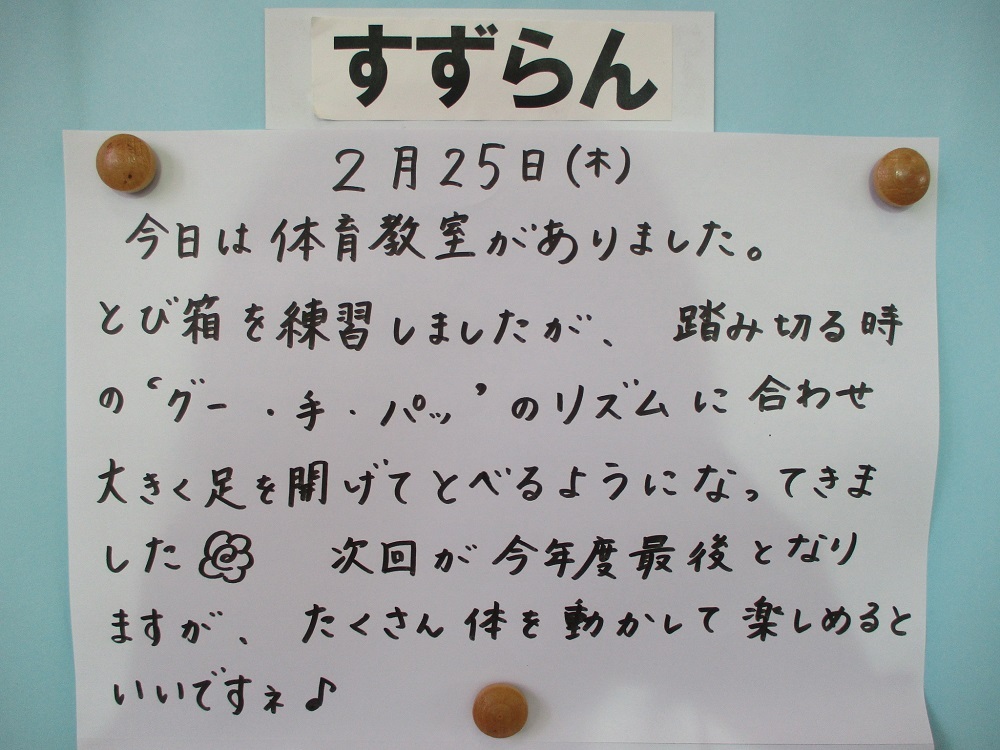 すずらん
2月25日(木)
今日は体育教室がありました。
とび箱を練習しましたが、踏み切る時
の‘グー・手・パッ’のリズムに合わせ
大きく足を開げてとべるようになってきま
した 次回が今年度最後となり
ますが、たくさん体を動かして楽しめると
いいですネ♪